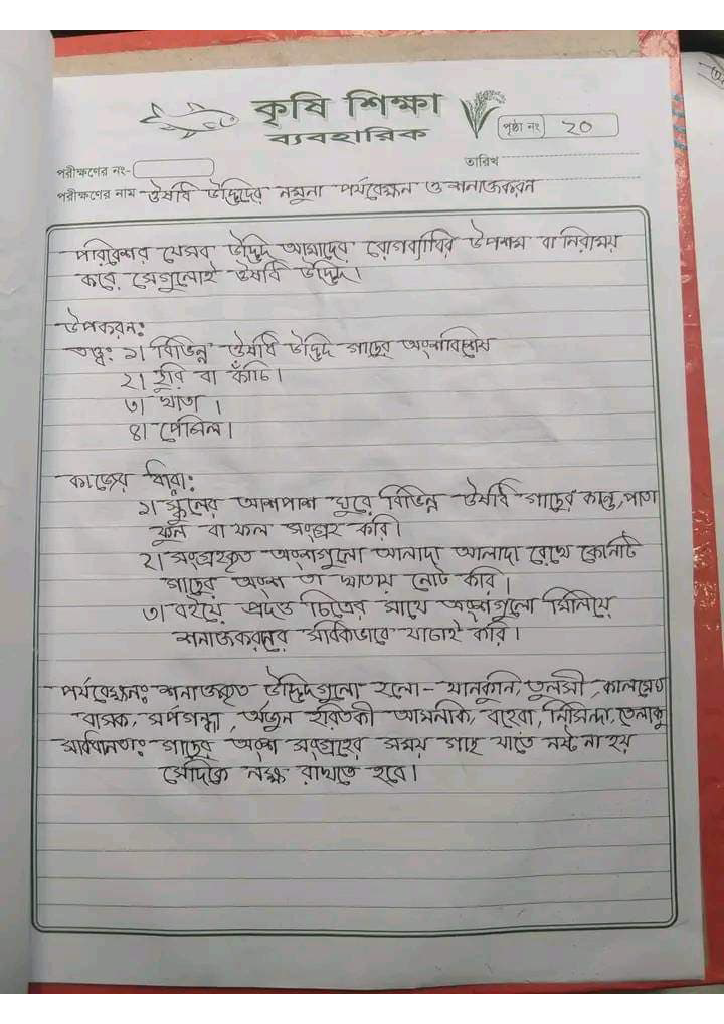 কৃষি শিক্ষা
ব্যবহারিক
পৃষ্ঠা নং ২০
তারিখ
পরীক্ষণের নং-
পরীক্ষণের নাম ঔষধি উদ্ভিদের নমুনা পর্যবেক্ষন ও শনাক্তকরন
পরিবেশর যেসব উদ্ভিদ আমাদের রোগব্যাধির উপশম বা নিরাময়
করে সেগুলোই ঔষধি উদ্ভিদ।
উপকরন:
১। বিভিন্ন ঔষধি উদ্ভিদ গাছের অংশবিশেষ
২। ছুরি বা কাঁচি।
৩। খাতা ।
৪। পেন্সিল।
কাজের ধারা:
১। স্কুলের আশপাশ ঘুরে বিভিন্ন ঔষধি গাছের কান্ড, পাতা
ফুল বা ফল সংগ্রহ করি।
২। সংগ্রহকৃত অংশগুলো আলাদা আলাদা রেখে কোনটি
গাছের অংশ তা খাতায় নোট করি।
৩। বইয়ে প্রদত্ত চিত্রের সাথে অংশগুলো মিলিয়ে
শনাক্তকরনের সঠিকভাবে যাচাই করি।
পর্যবেক্ষন: শনাক্তকৃত উদ্ভিদগুলো হলো- থানকুনি, তুলসী, কালমেঘ
বাসক, সর্পগন্ধা, অর্জুন হরিতকী আমলকি, বহেরা, নিসিন্দা, তেলাকু
সাবধানতা: গাছের অংশ সংগ্রহের সময় গাছ যাতে নষ্ট না হয়
সেদিকে লক্ষ রাখতে হবে।